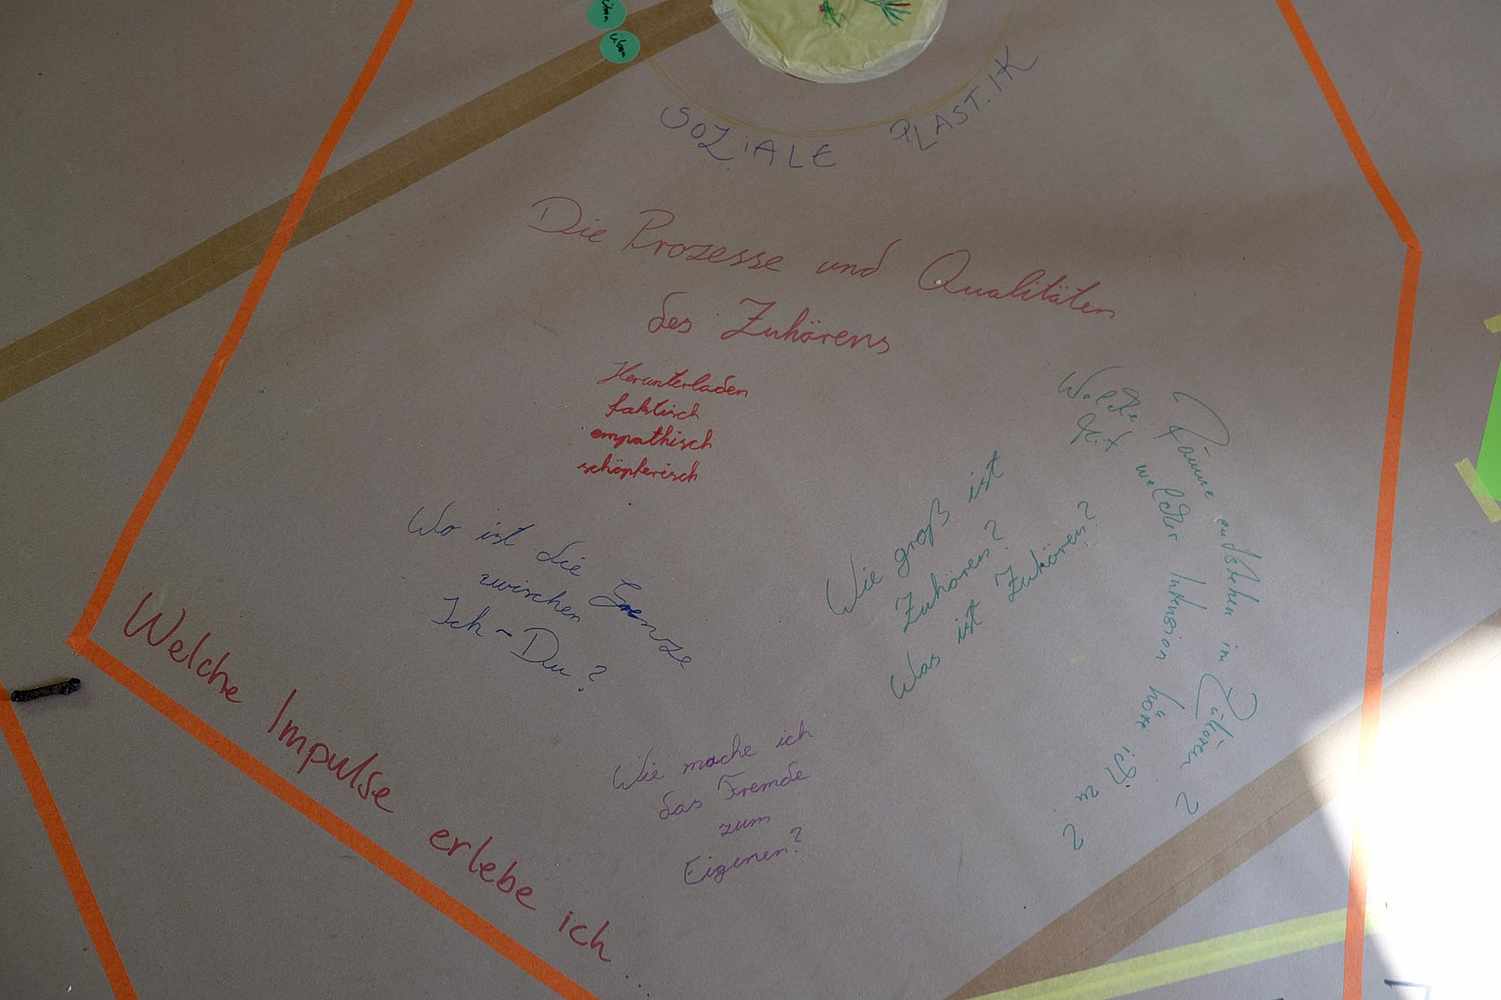 üben
SOZiALE PLASTiK
Die Prozesse und Qualitäten
des Zuhörens
Herunterladen
faktisch
empathisch
schöpferisch
Wo ist die Grenze
zwischen
Ich - Du?
Wie groß ist
Zuhören?
Was ist Zuhören?
Welche Räume entstehen in Zuhören?
Mit welcher Intension höre ich zu?
Wie mache ich
das Fremde
zum
Eigenen?
Welche Impulse erlebe ich